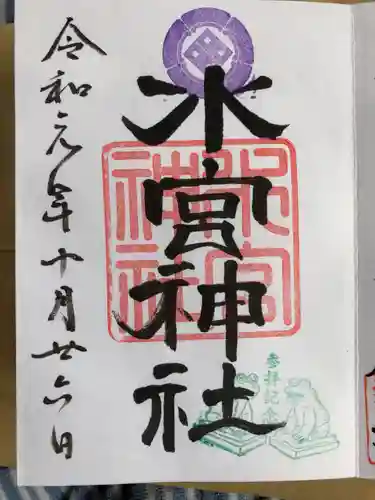 水宮神社
水宮
神社
参拝記念
令和元年十月廿六日